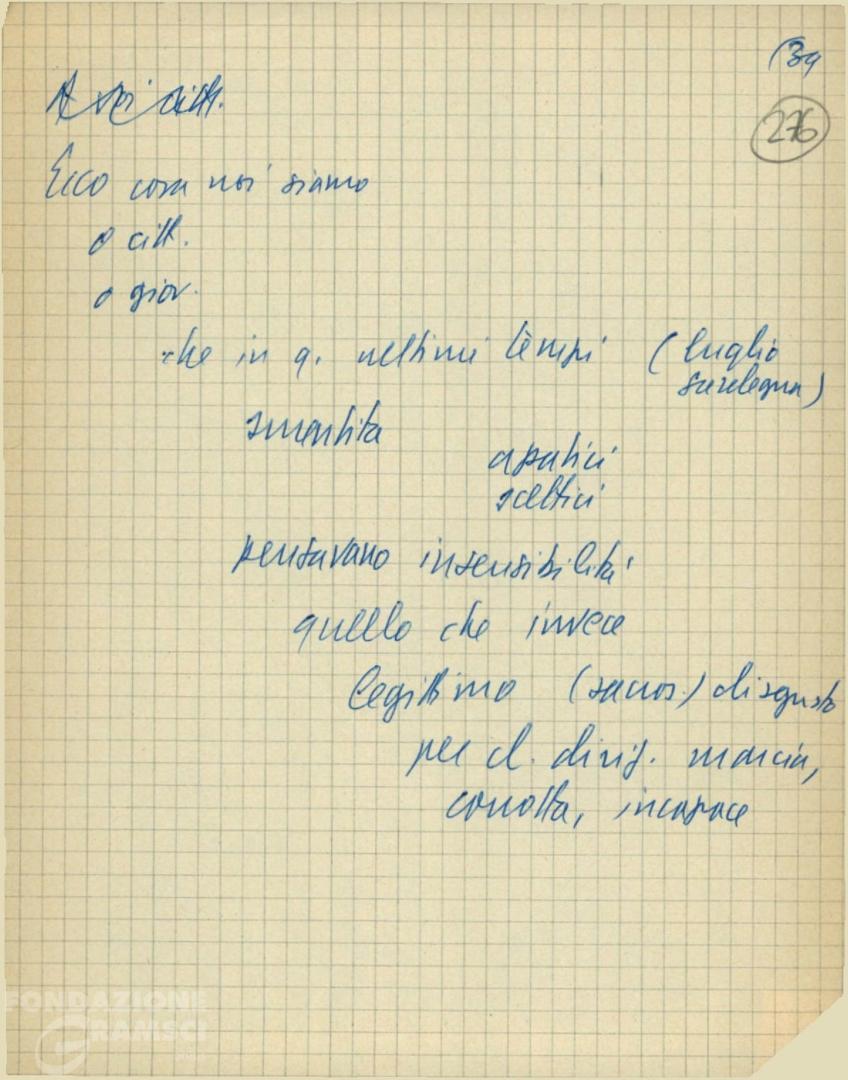 (39
276
A voi citt.
Ecco cosa noi siamo
o citt.
o giov.
che in q. ultimi tempi (luglio
Sardegna)
smentita
apatici
scettici
pensavano insensibilità
quello che invece
legittimo (sacros.) disgusto
per cl. dirig. marcia,
corrotta, incapace
FONDAZIONE
GRAMSCI